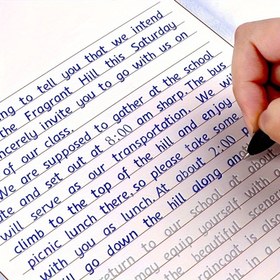 ng to tell you that we intend
the Fragrant Hill this Saturday
sincerely invite you to go with us on
of our class.
We are supposed to gather at the school
ate and set out at 8:00 am sharp. The bus
will serve as our transportation. We will
climb to the top of the hill and enjoy
picnic lunch there, so please take some
with you as lunch. At about 2:00 p
ll go down the hill along an
return to our school at about
may equip yourself
the beautiful scener
raincoat is also